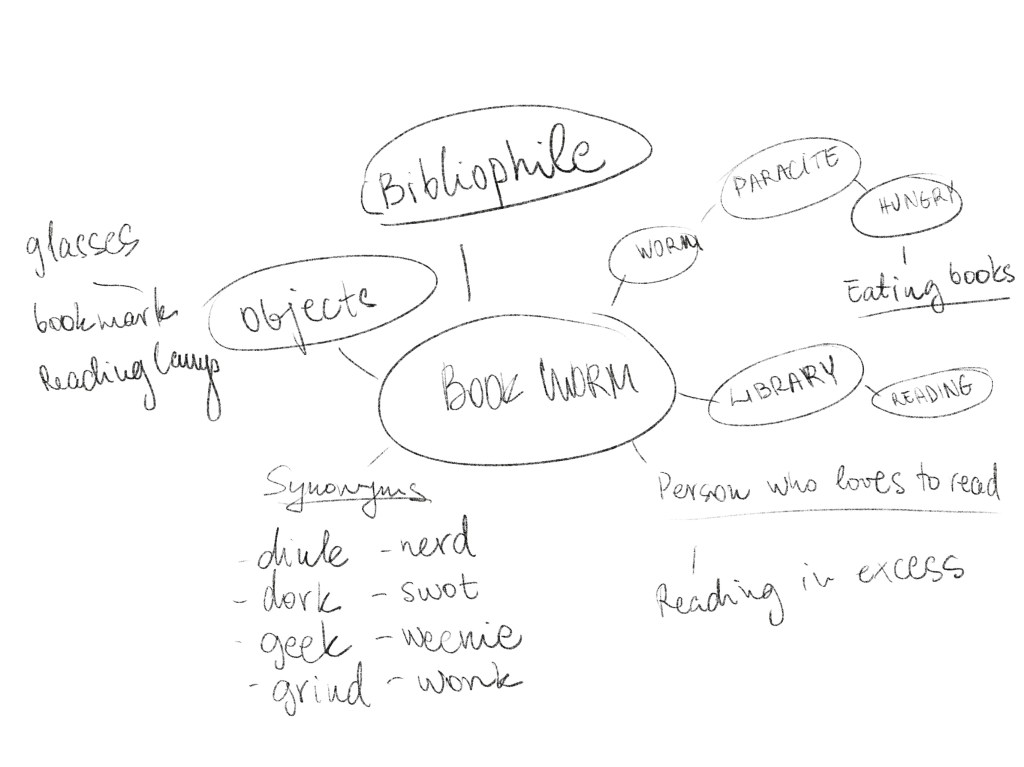 Bibliophile
PARACITE
HUNGRY
WORM
Eating books
glasses
bookmark
Reading lamp
objects
BOOK WORM
LIBRARY
READING
Synonyms
- nerd
- dork - swot
- geek - weenie
- grind - wonk
Person who loves to read
Reading in excess